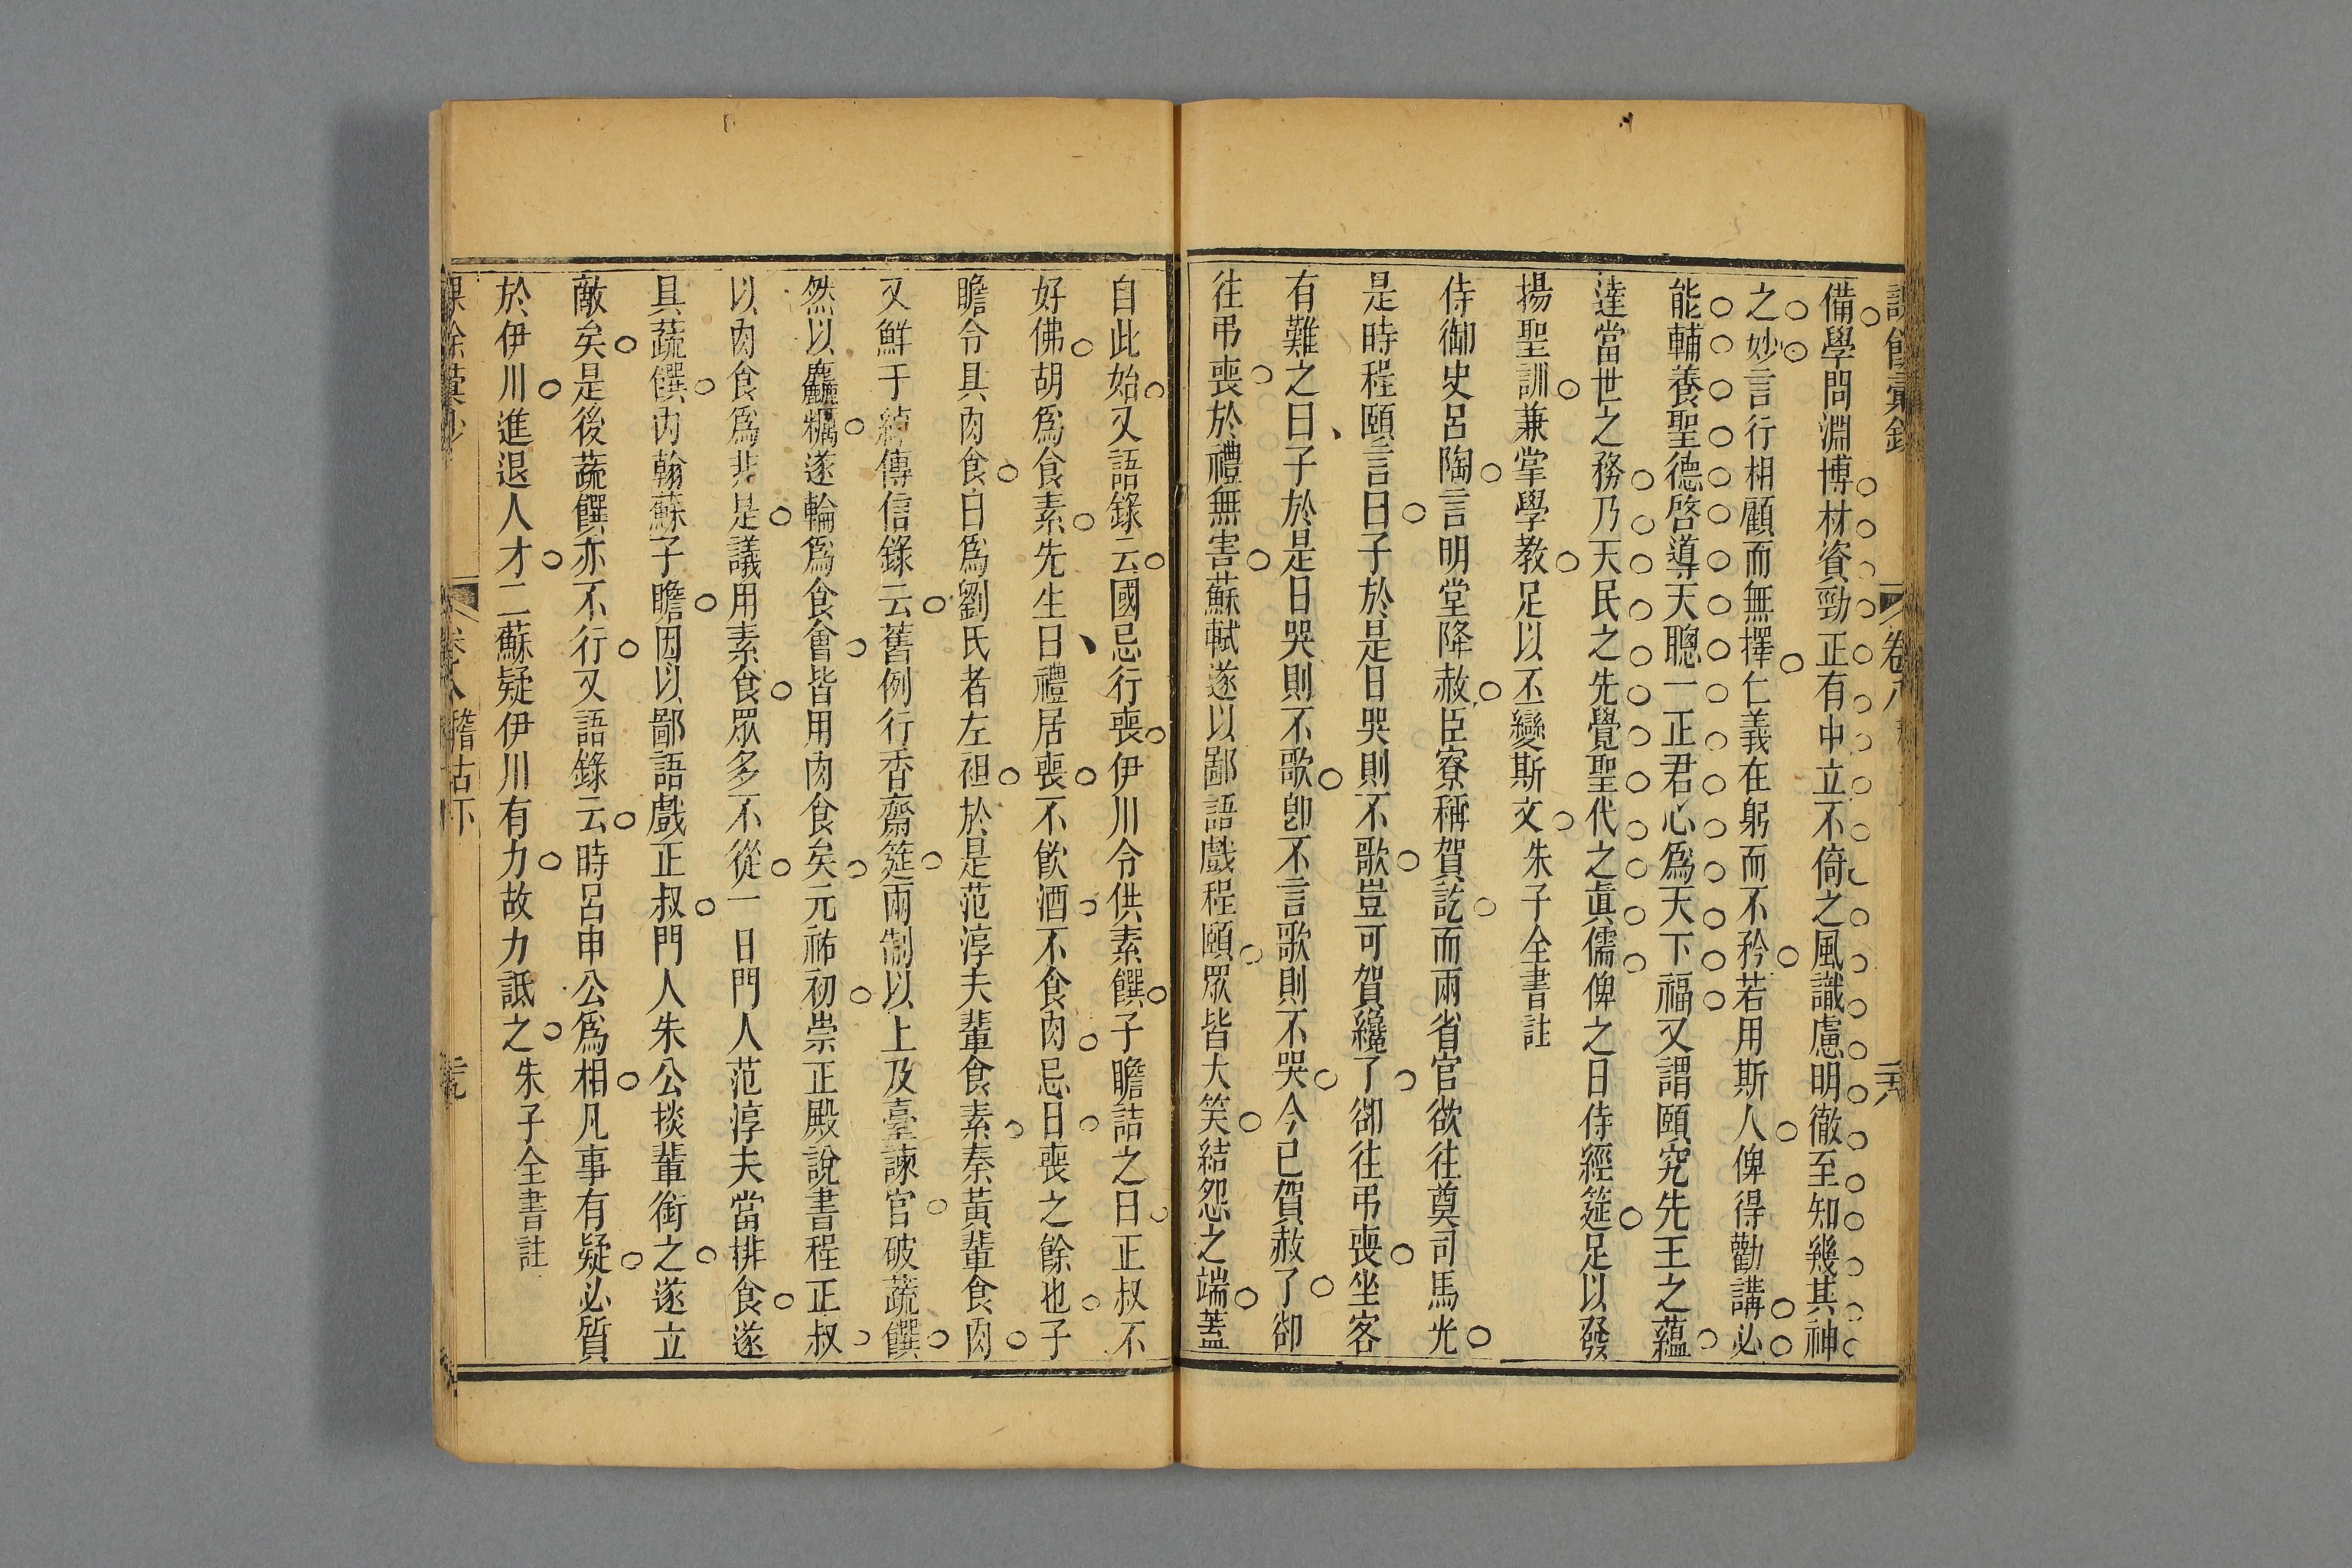 備學問淵博材資勁正有中立不倚之風識慮明徹至知幾其神
之妙言行相顧而無擇仁義在躬而不矜若用斯人俾得勸講必
能輔養聖德啓導天聰一正君心爲天下福又謂頤究先王之蘊
達當世之務乃天民之先覺聖代之眞儒俾之日侍經筵足以發
揚聖訓兼掌學教足以丕變斯文朱子全書註
侍御史呂陶言明堂降赦臣寮稱賀訖而兩省官欲往奠司馬光
是時程頤言曰子於是日哭則不歌豈可賀纔了卻往弔喪坐客
有難之曰子於是日哭則不歌卽不言歌則不哭今已賀赦了卻
往弔喪於禮無害蘇軾遂以鄙語戲程頤眾皆大笑結怨之端蓋
自此始又語錄云國忌行喪伊川令供素饌子瞻詰之曰正叔不
好佛胡爲食素先生曰禮居喪不飲酒不食肉忌日喪之餘也子
瞻令具肉食曰爲劉氏者左袒於是范淳夫輩食素秦黃輩食肉
又鮮于綽傳信錄云舊例行香齋筵兩制以上及臺諫官破蔬饌
然以麤糲遂輪爲食會皆用肉食矣元祐初崇正殿說書程正叔
以肉食爲非是議用素食眾多不從一日門人范淳夫當排食遂
具蔬饌内翰蘇子瞻因以鄙語戲正叔門人朱公掞輩銜之遂立
敵矣是後蔬饌亦不行又語錄云時呂申公爲相凡事有疑必質
於伊川進退人才二蘇疑伊川有力故力詆之朱子全書註
卷八 稽古下